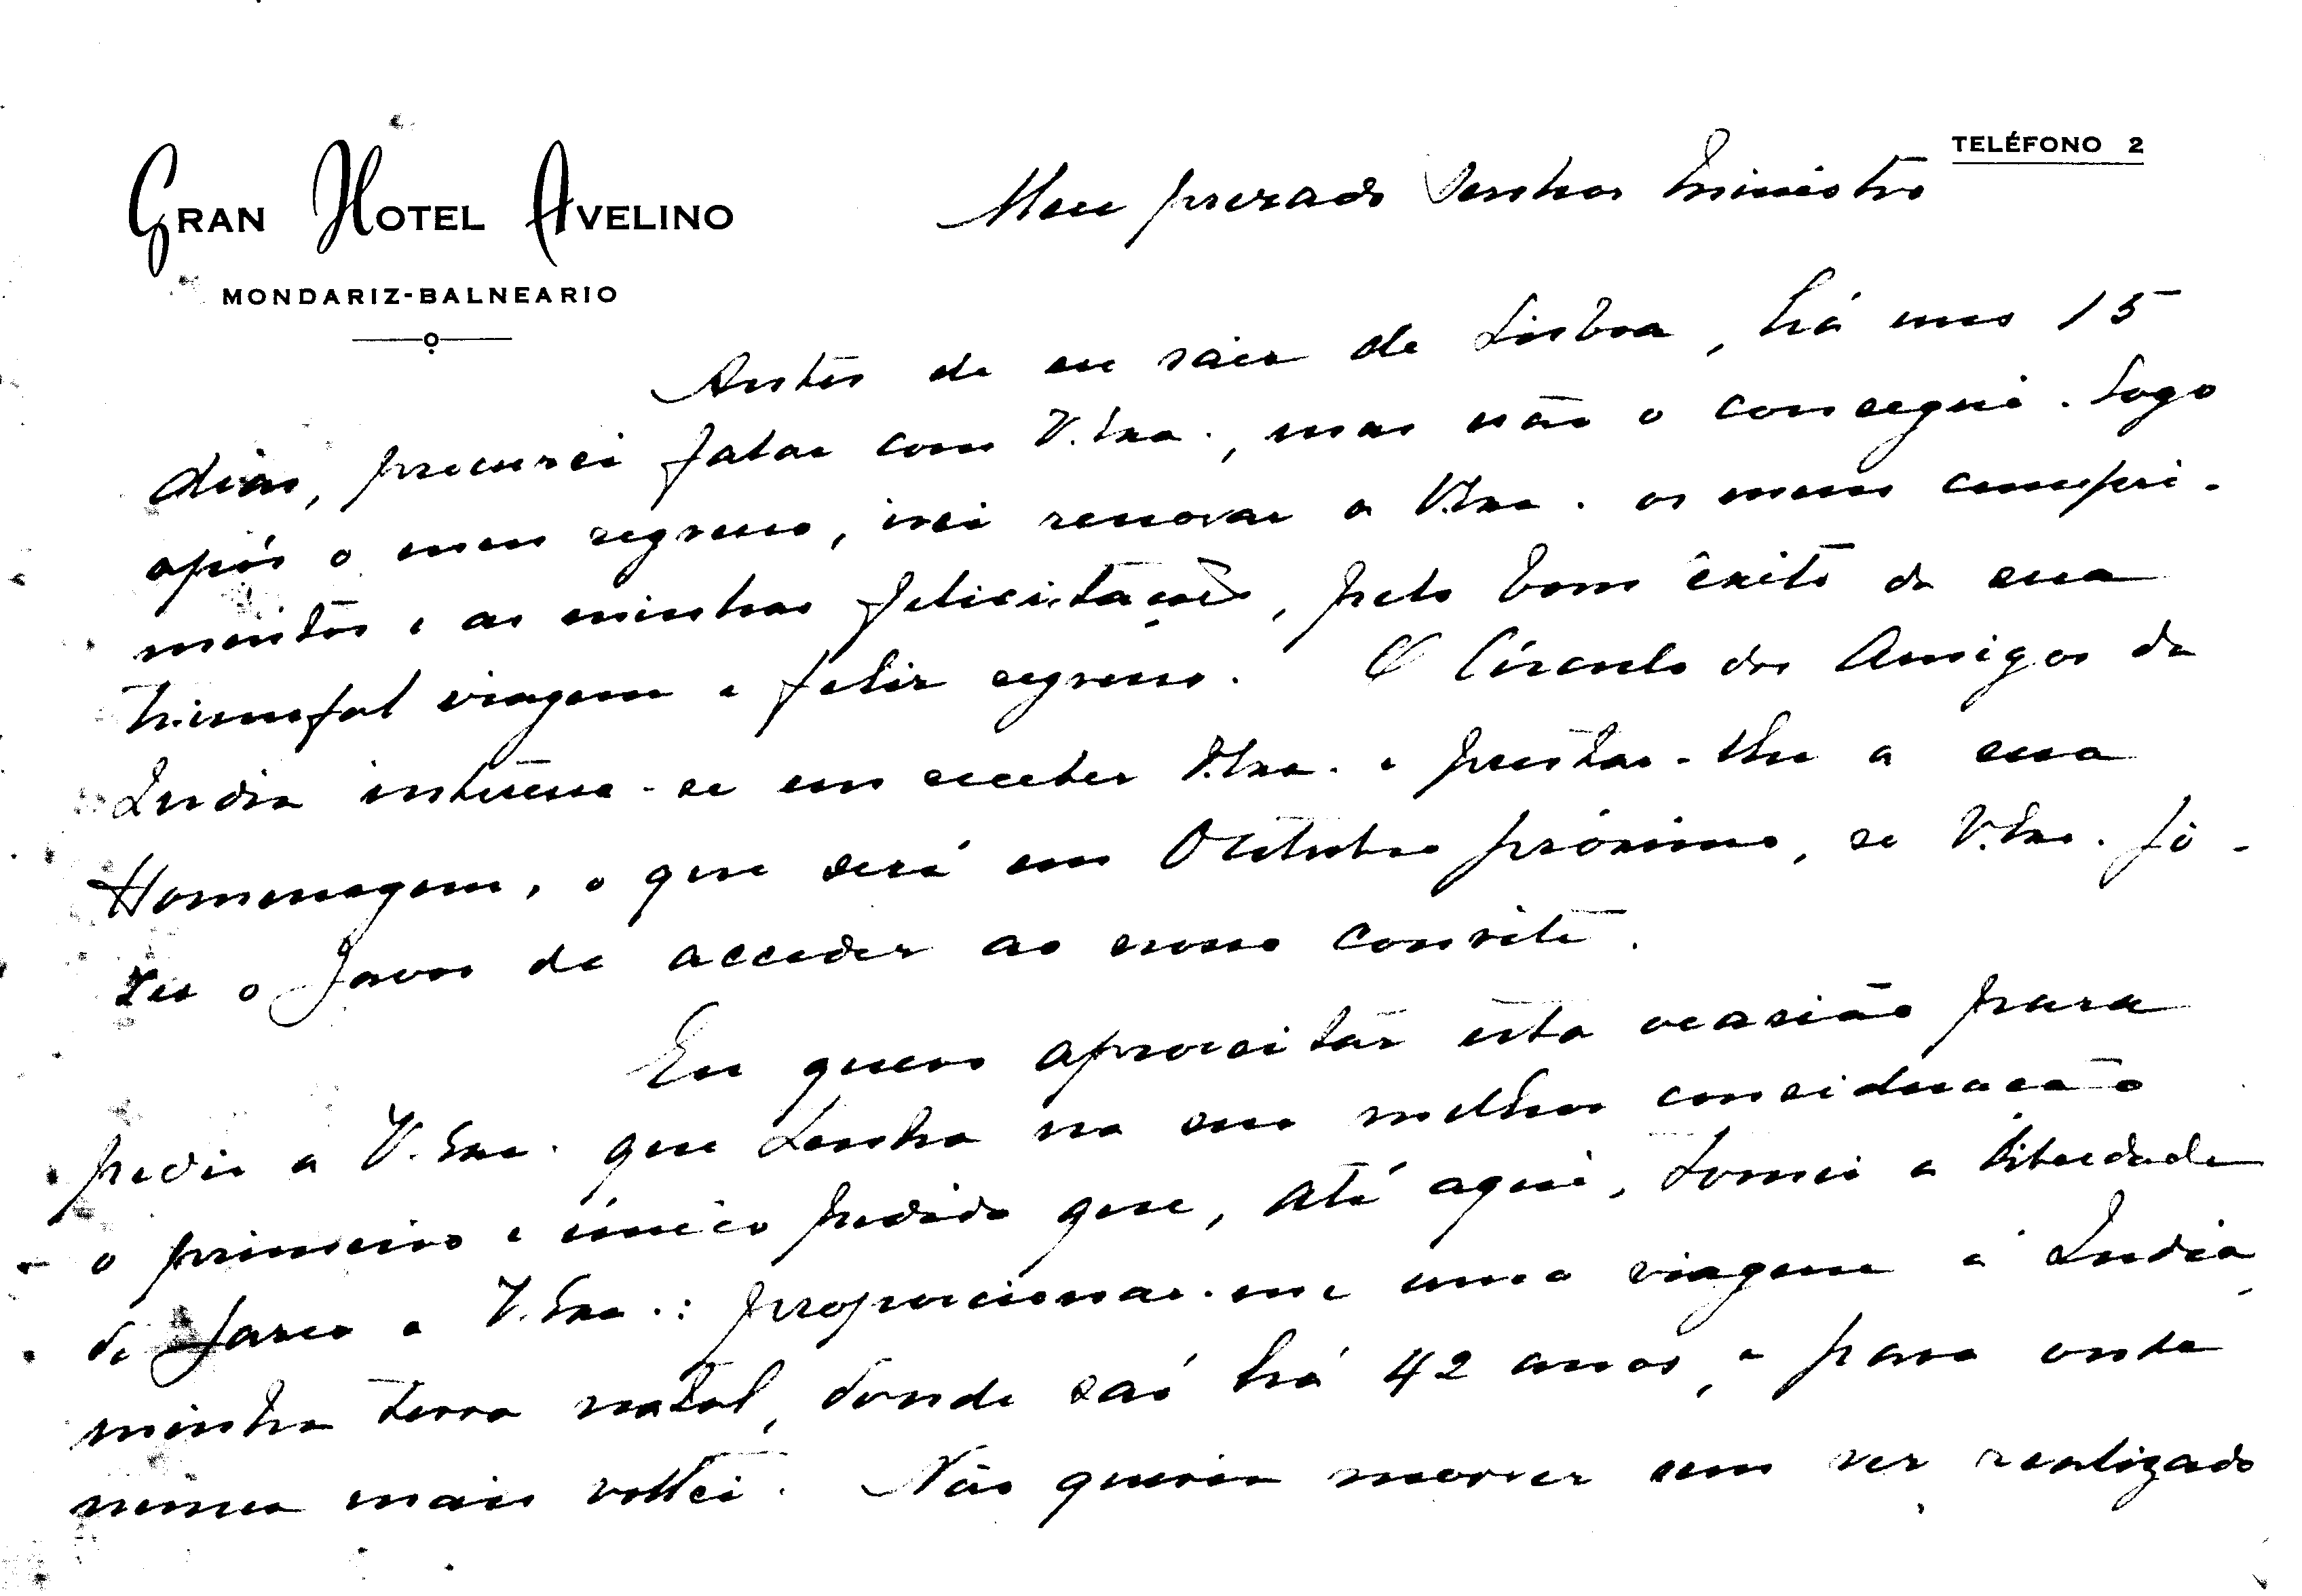 GRAN HOTEL AVELINO
MONDARIZ-BALNEARIO
TELÉFONO 2
Meu prezado Senhor Ministro
Antes de eu sair de Lisboa, há uns 15
dias, procurei falar com V.Exa., mas não o consegui. Logo
após o meu regresso, irei renovar a V.Exa. os meus cumpri-
mentos e as minhas felicitações, pelo bom êxito da sua
triunfal viagem e feliz regresso. O Círculo dos Amigos da
India interessa-se em receber V.Exa. e prestar-lhe a sua
Homenagem, o que será em Outubro próximo, se V.Exa. fi-
zer o favor de acceder ao nosso convite.
Eu quero aproveitar esta ocasião para
pedir a V.Exa. que tenha na sua melhor consideração
o primeiro e único pedido que, até aqui, tomei a liberdade
de fazer a V.Exa.: proporcionar-me uma viagem à India,
minha terra natal, donde saí há 42 anos, e para onde
nunca mais voltei. Não queria morrer sem ver realizado